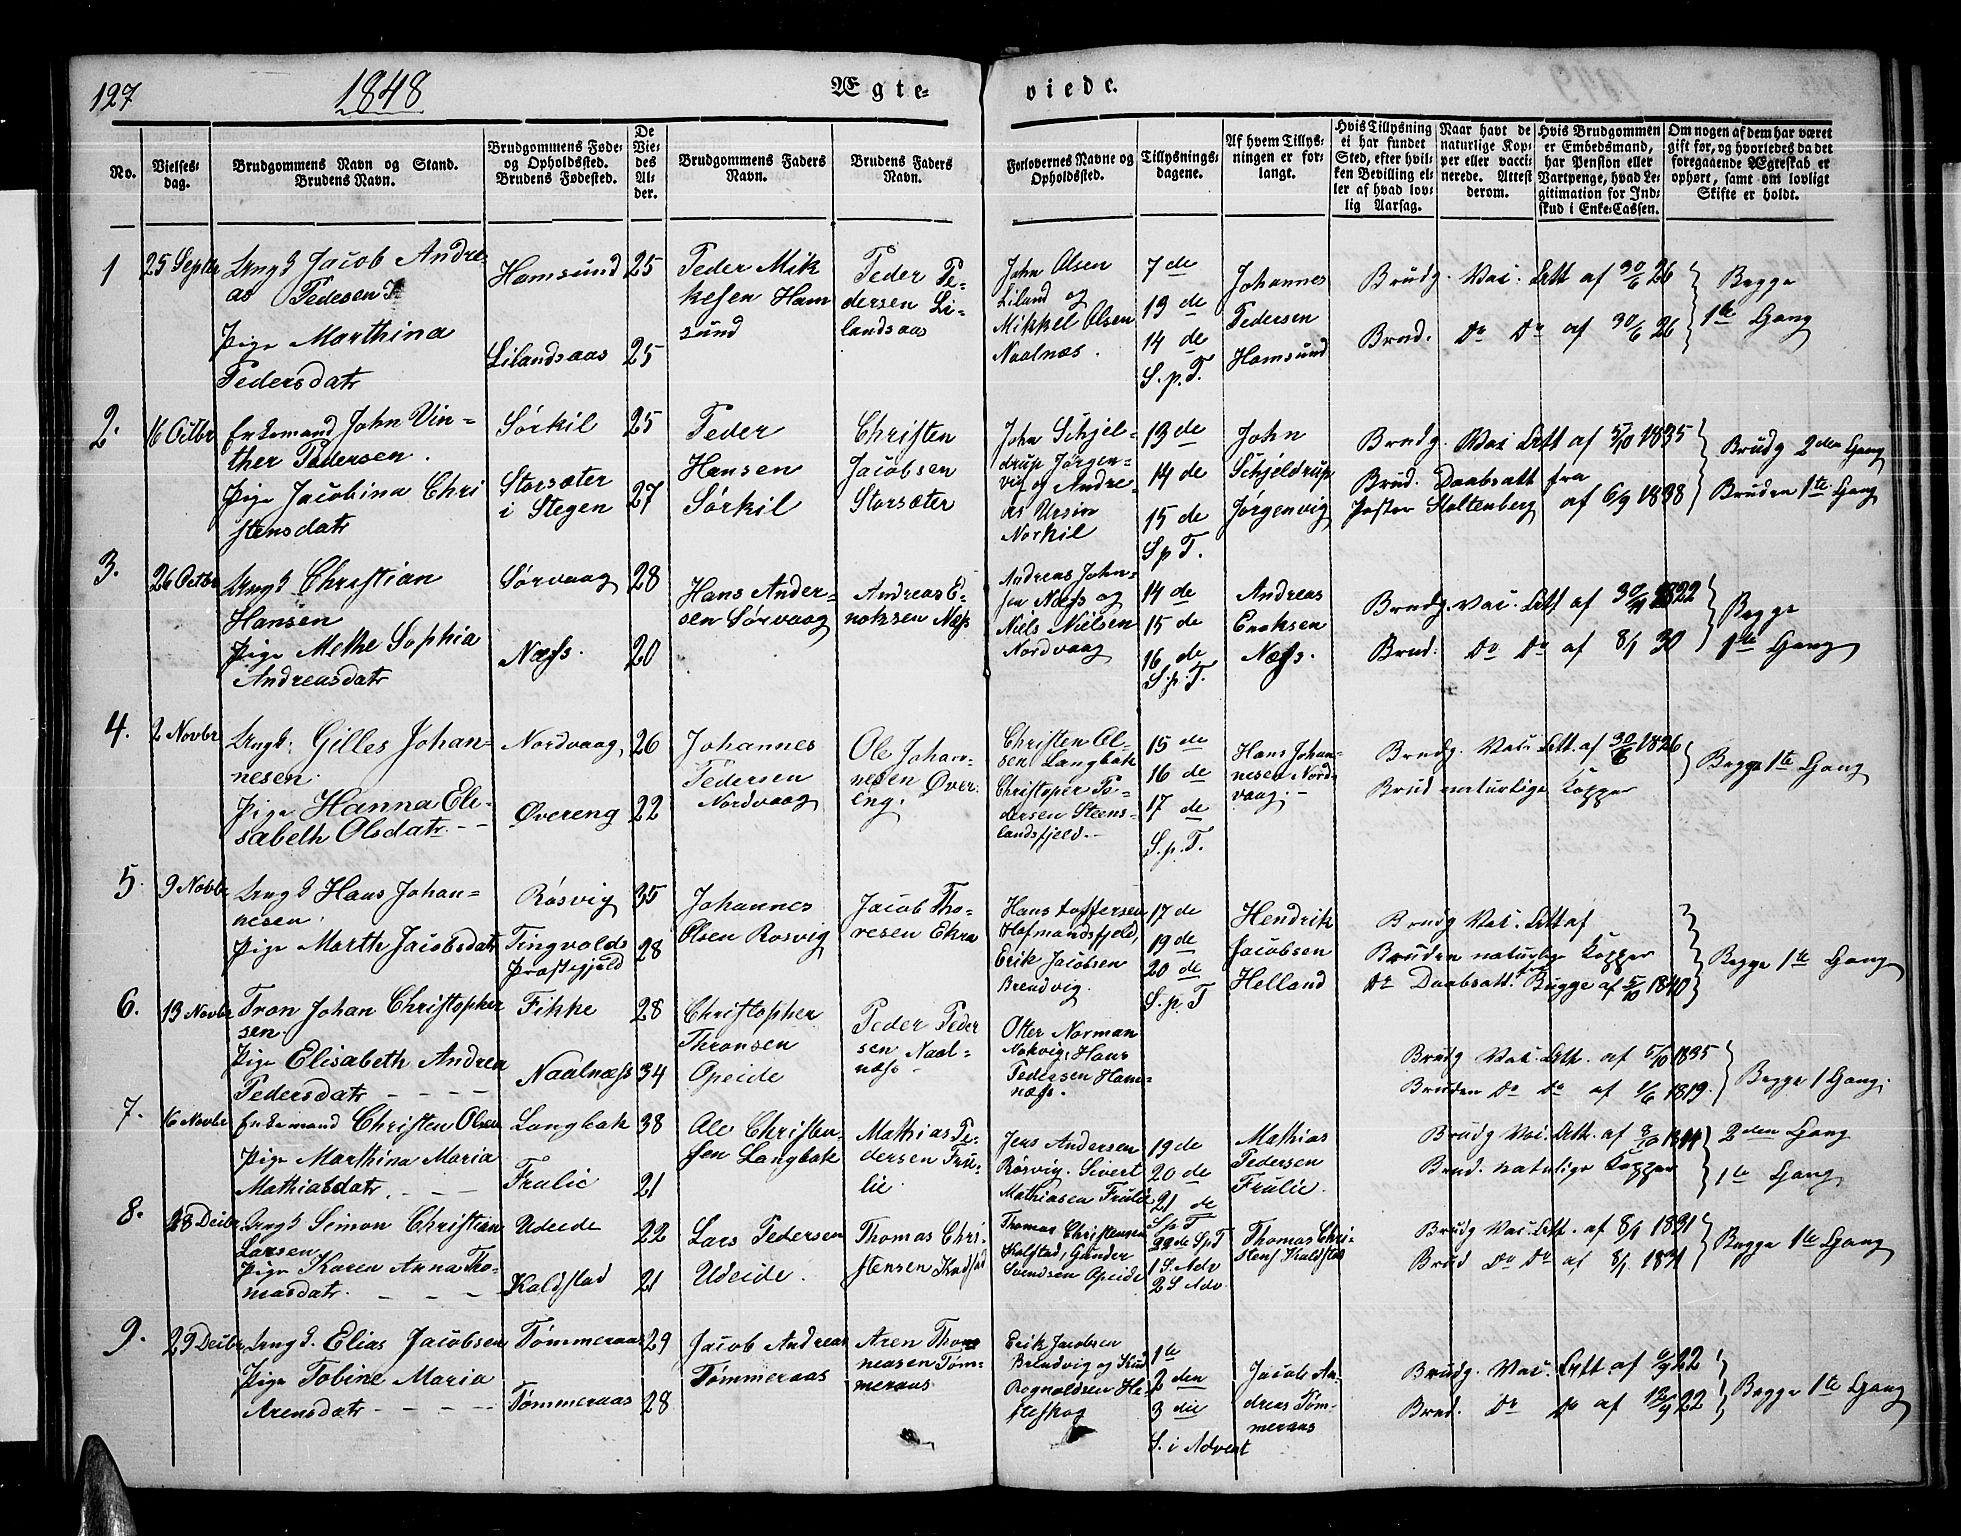 127
1848
Ægte-
viede.
No.
Vielses-
dag.
Brudgommens Navn og Stand.
Brudens Navn.
Brudgommens Føde-
og Opholdssted.
Brudens Fødested.
De
Vie-
des
Al-
der.
Brudgommens Faders
Navn.
Brudens Faders
Navn.
Forlovernes Navne og
Opholdssted.
Tillysnings-
dagene.
Af hvem Tillys-
ningen er for-
langt.
Hvis Tillysning
ei har fundet
Sted, efter hvil-
ken Bevilling el-
ler af hvad lov-
lig Aarsag.
Naar havt de
naturlige Kop-
per eller vacci-
nerede. Attest
derom.
Hvis Brudgommen
er Embedsmand,
har Pension eller
Vartpenge, hvad Le-
gitimation for Ind-
skud i Enke-Cassen.
Om nogen af dem har været
gift for, og hvorledes da det
foregaaende Ægteskab er
ophørt, samt om lovligt
Skifte er holdt.
1
25 Septbr
Ungk Jacob Andre
as Pedesen
Pige Marthina
Pedersdatr
Hamsund
Lilandsaas
25
25
Peder Mik
kelsen Ham
sund
Peder Pe-
dersen Li-
landsaas
John Olsen
Liland og
Mikkel Olsen
Naalnæs.
7 de
13 de
14 de
S. p. T.
Johannes
Pedersen
Hamsund
Brudg. Vac. Att af 30/6 26
Brud. Do Do af 30/6 26
Begge
1te Gang
2.
16 Octbr
Enkemand John Vin-
ther Pedersen.
Pige Jacobina Chri
stensdatr
Sørkil
Storsæter
i Stegen
25
27
Peder
Hansen
Sørkil
Christen
Jacobsen
Storsæter
John Schjel-
drup Jørgen-
vig og Andre-
as Ursin
Norkil
13 de
14 de
15 de
S p T.
John
Schjeldrup
Jørgenvig
Brudg. Vac Att af 5/10 1835
Brud. Daabsatt fra
Paster Stoltenberg af 6/9 1838
Brudg 2den Gang
Bruden 1te Gang
3.
26 Octbr
Ungk Christian
Hansen
Pige Methe Sophia
Andreasdatr
Sørvaag
Næss.
28
20
Hans Ander-
sen Sørvaag
Andreas E-
noksen Næss
Andreas John-
sen Næss og
Niels Nielsen
Nordvaag
14 de
15 de
16 de
S. p. T.
Andreas
Enoksen
Næss.
Brudg. Vac. Att af 30/ 1822
Brud. Do Do af 8/1 30
Begge
1te Gang
4.
2 Novbr
Ungk. Gilles Johan-
nesen.
Pige Hanna Eli-
sabeth Olsdatr
Nordvaag
Øvereng
26
22
Johannes
Pedersen
Nordvaag
Ole Johan-
nesen Øver-
eng.
Christen Ol-
sen Langbak
Christopher Pe-
dersen Steens-
landsfjeld.
15 de
16 de
17 de
S. p. T.
Hans Johan-
nesen Nord
vaag.
Brudg. Vac. Att. af 30/6 1826
Brud naturlige Kopper
Begge 1te Gang
5.
9 Novbr
Ungk Hans Johan-
nesen.
Pige Marth Jacobsdatr
Røsvig
Tingvolds
Præstegjeld
35
28
Johannes
Olsen Rosvig
Jacob Tho-
resen Ekra
Hans Loffersen
Hofmandsfjeld,
Erik Jacobsen
Brendvig.
17 de
19 de
20 de
S. p. T
Hendrik
Jacobsen
Helland
Brudg Vac. Att af
Bruden naturlige Kopper
Do Daabsatt. fra Bugge af 5/10 1840
Begge 1te Gang
6.
13 Novbr
Tron Johan Christopher
sen.
Pige Elisabeth Andrea
Pedersdatr
Fikke
Naalnæss
28
34
Christopher
Thronsen
Opeide
Peder Peder
sen Naal-
næss
Otter Norman
Nokvig, Hans
Pedersen Ham-
næss.
Brudg Vac. Att. af 5/10 1835
Bruden Do Do af 1/6 1819.
Begge 1 Gang.
7.
16 Novbr
Enkemand Christen Olsen
Pige Marthina Maria
Mathiasdatr.
Langbak
Frulie
38
21
Ole Christen-
sen Langbak
Mathias Pe-
dersen Fru-
lie.
Jens Andersen
Røsvig. Sivert
Mathiasen Frulie
19 de
20 de
21 de
S p T
Mathias
Pedersen
Frulie.
Brudg Vac. Att. af
Brud. naturlige Kopper
2den Gang
1te Gang
8.
28 Decbr
Ungk Simon Christian
Larsen
Pige Karen Anna Tho-
masdatr.
Udeide
Kaldstad
22
21
Lars Pedersen
Udeide.
Thomas Chri-
stensen
Thomas Christensen
Kalstad, Gunder
Svendsen Opeide
22de S p T
1 S. Adv
2 S Adv.
Thomas Chri-
stens Kaldstad
Brudg Vac. Att. af 8/1 1831
Brud Do Do af 8/1 1831
Begge 1te Gang
9.
29 Decbr
Ungk. Elias Jacobsen
Pige Tobine Maria
Arensdatr
Tømmeraas
Tømmeraas
29
28
Jacob Andreas
Tømmeraas
Aren Thom
measen Tøm-
meraas
Erik Jacobsen
Brendvig og Knud
Rognaldsen He-
stefskog
1te
2 den
3 die
S. i Advent
Jacob An-
dreas Tøm-
meraas
Brudg. Vac. Att. af 6/9 22
Brud. Do Do af 13/9 22
Begge 1te Gang